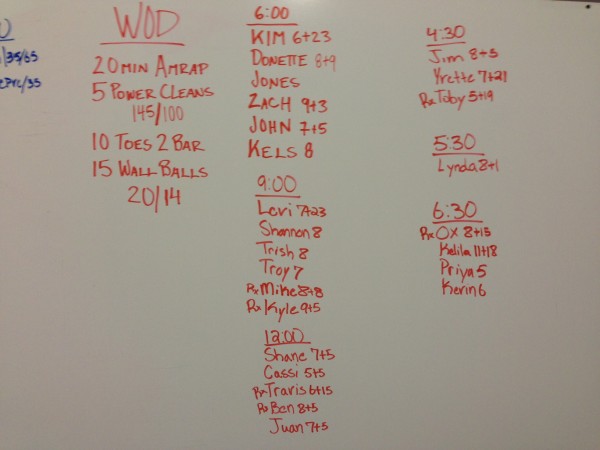 /35/55
WOD
20 MIN AMRAP
5 POWER CLEANS
145/100
10 TOES 2 BAR
15 WALL BALLS
20/14
6:00
KIM 6+23
DONETTE 8+9
JONES
ZACH 9+3
JOHN 7+5
KELS 8
9:00
Levi 7+23
Shannon 8
Trish 8
Troy 7
Rx Mike 8+8
Rx Kyle 9+5
12:00
Shane 7+5
Cassi 5+5
Rx Travis 6+15
Rx Ben 8+5
Juan 7+5
4:30
Jim 8+5
Yvette 7+21
Rx Toby 5+19
5:30
Lynda 8+1
6:30
Rx OX 8+15
Kelila 11+18
Priya 5
Kerin 6